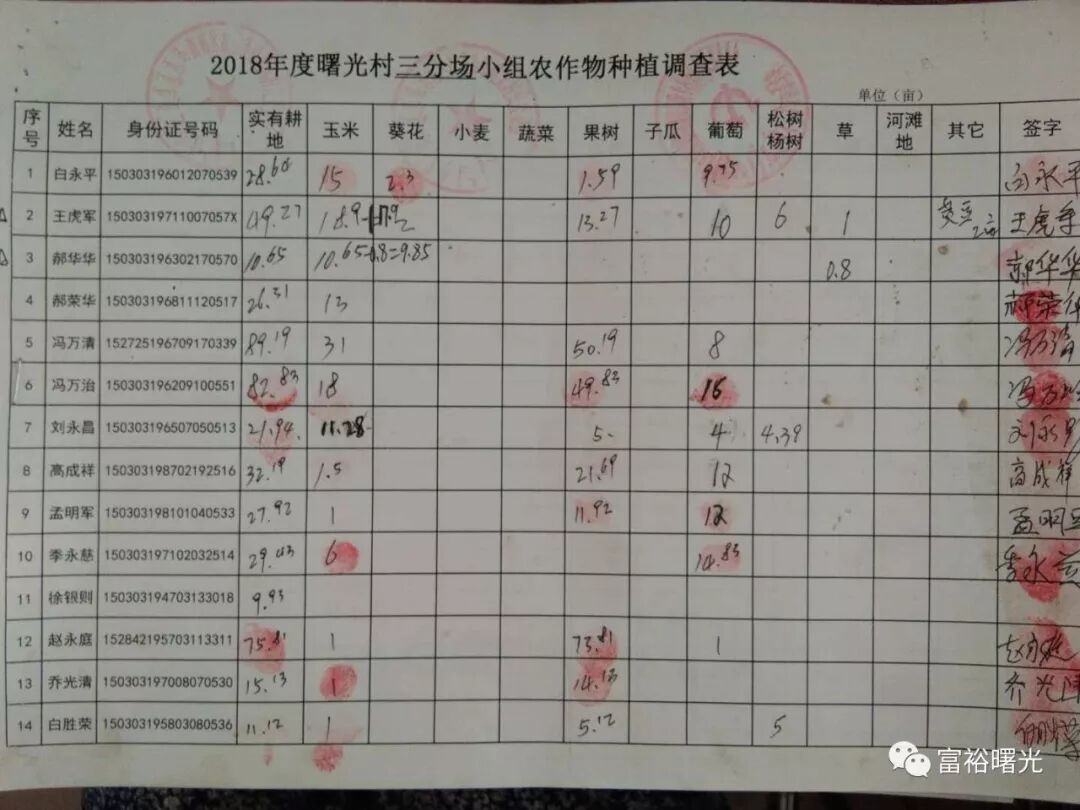 2018年度曙光村三分场小组农作物种植调查表
单位（亩）
序号 姓名 身份证号码 实有耕地 玉米 葵花 小麦 蔬菜 果树 子瓜 葡萄 松树杨树 草 河滩地 其它 签字
1 白永平 150303196012070539 28.64 15 2.3 1.59 9.75 白永平
2 王虎军 15030319711007057X 49.27 18.9 13.27 10 6 1 王虎军
3 郝华华 150303196302170570 10.65 10.65-0.8=9.85 0.8 郝华华
4 郝荣华 150303196811120517 26.31 13 郝荣华
5 冯万清 152725196709170339 89.19 31 50.19 8 冯万清
6 冯万治 150303196209100551 82.83 18 49.83 16 冯万治
7 刘永昌 150303196507050513 21.94 11.28 5 4 4.39 刘永昌
8 高成祥 150303198702192516 32.19 1.5 21.69 12 高成祥
9 孟明军 150303198101040533 27.92 1 11.92 12 孟明军
10 季永慈 150303197102032514 29.43 6 14.83 季永慈
11 徐银则 150303194703133018 9.93
12 赵永庭 152842195703113311 75.81 1 73.81 1 赵永庭
13 乔光清 150303197008070530 15.13 1 14.13 乔光清
14 白胜荣 150303195803080536 11.12 1 5.12 5 白胜荣
富裕曙光